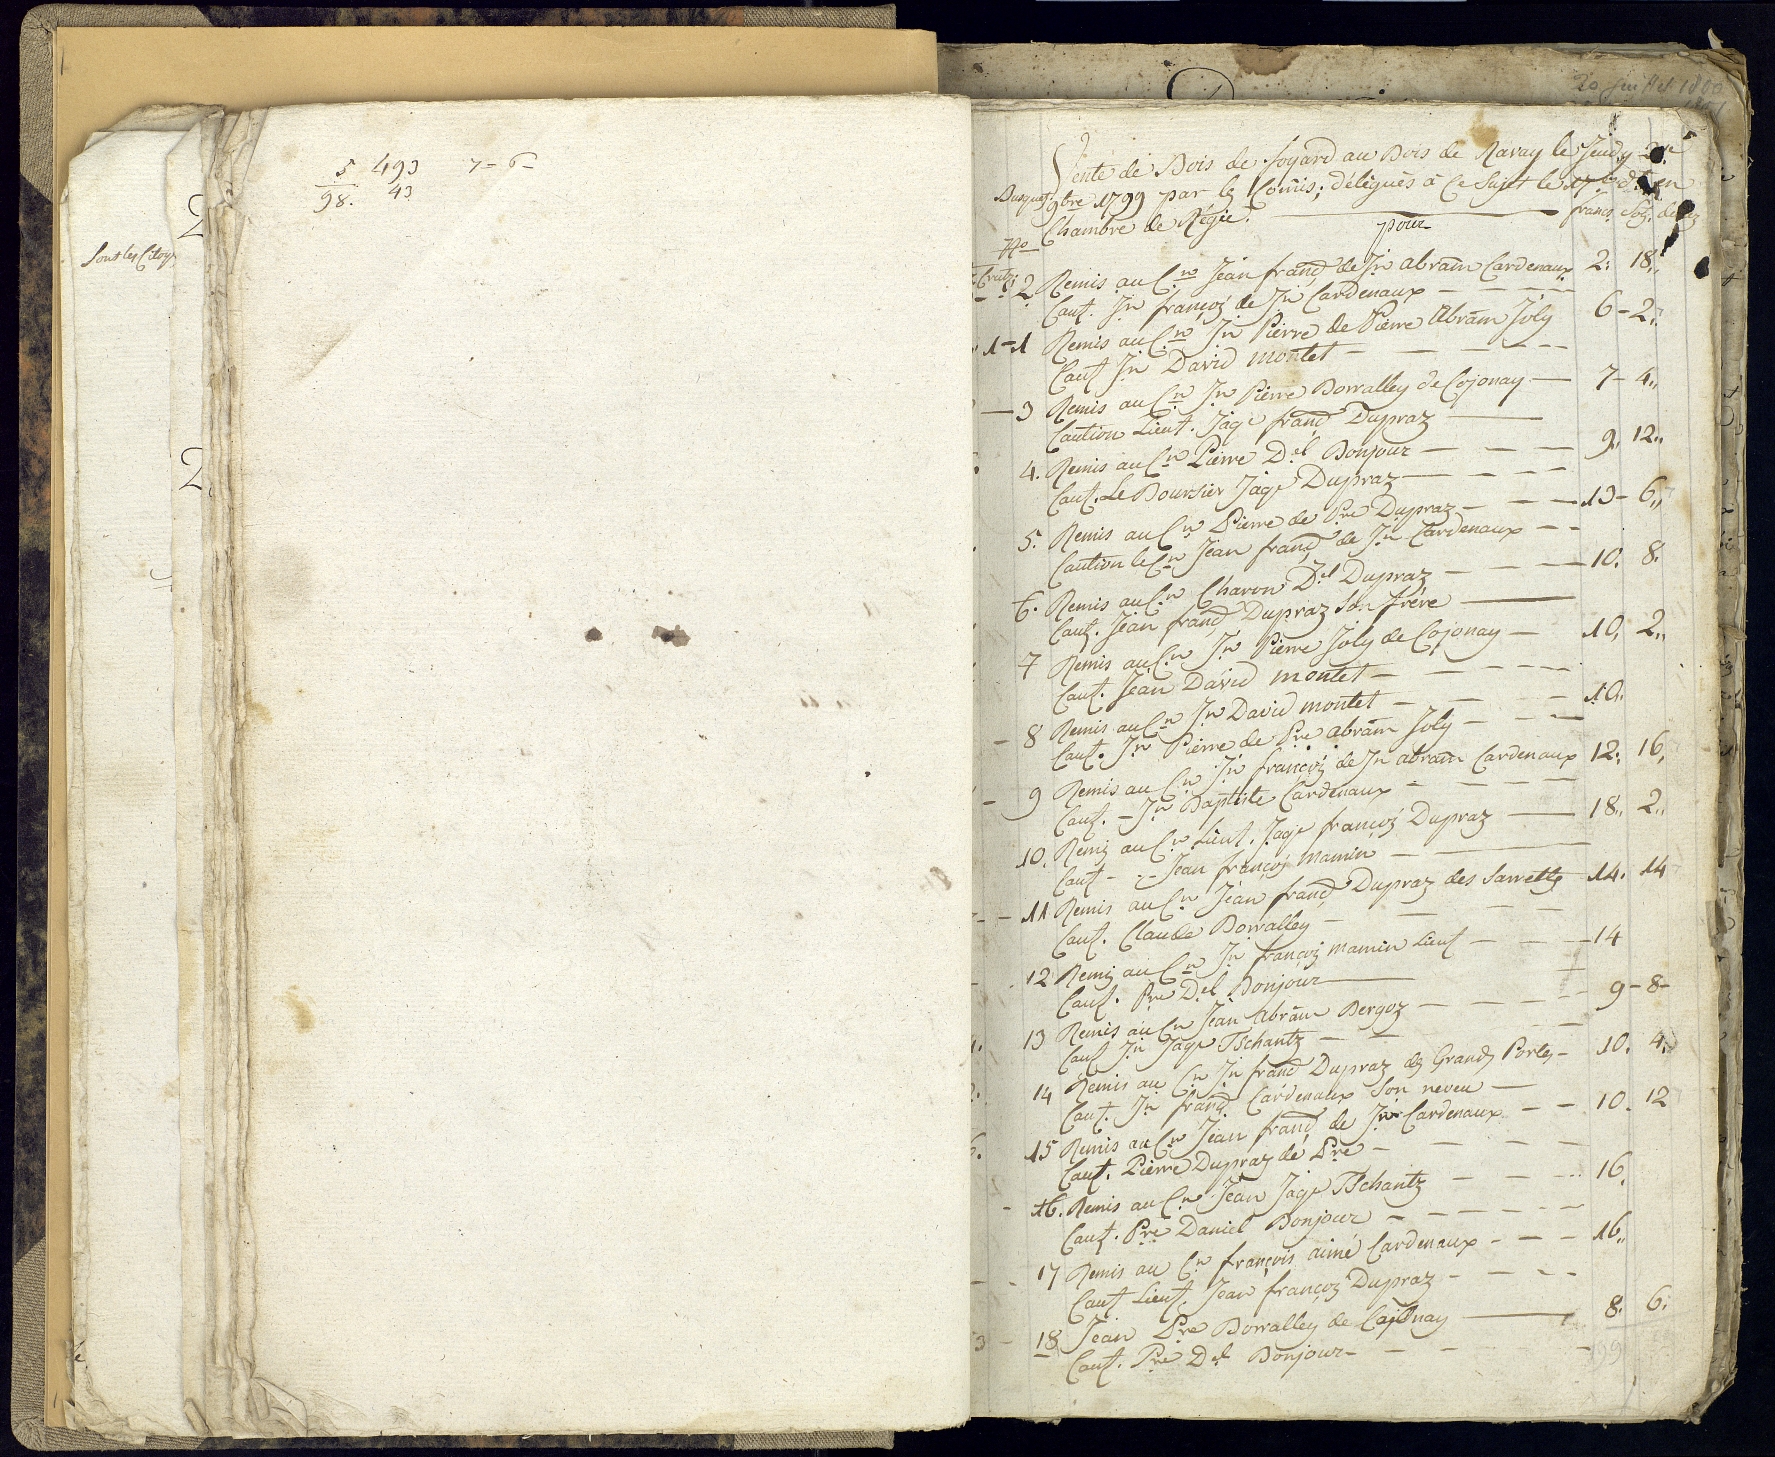 5 493 7-6-
98. 43
Sont les Citoy.
2
2.
20 Juillet 1800
Vente de Bois de foyard au Bois de Ravay le Jeudy
9bre 1799 par les Comis; délégués à Ce Sujet le 17e dt en
Chambre de Régie. francs
No pour
2 Remis au Cn Jean franç de Jn abram Cardenaux 2: 18"
Caut. Jn françoi de Jn Cardenaux
1 Remis au Cn Jn Pierre de Pierre Abram Joly 6-2"
Caut Jn David montet
3 Remis au Cn Jn Pierre Dorvalley de Cojonay 7-4"
Caution Lieut. Jaqe franç Dupraz
4. Remis au Cn Pierre Del Bonjour 9" 12"
Caut. Le Boursier Jaqe Dupraz
5. Remis au Cn Pierre de Pre Dupraz 13-6"
Caution le Cn Jean franç de Jn Cardenaux
6. Remis au Cn Charon Del Dupraz 10. 8.
Caut. Jean franç Dupraz Son frére
7 Remis au Cn Jn Pierre Joly de Cojonay 10, 2"
Caut. Jean David montet
8 Remis au Cn Jn David montet 10"
Caut. Jn Pierre de Pre abram Joly
9 Remis au Cn Jn françoi de Jn abram Cardenaux 12: 16,
Caut. Jn Baptiste Cardenaux
10. Remis au Cn Lieut. Jaqe françoi Dupraz 18" 2"
Caut Jean françoi mamin
11 Remis au Cn Jean franç Dupraz des 14. 14
Caut. Claude Dorvalley
12 Remis au Cn Jn françoi mamin Lieut 14
Caut. Pre Del Bonjour
13 Remis au Cn Jean Abram Bergoz 9-8-
Caut Jn Jaqe Tschantz
14 Remis au Cn Jn franç Dupraz des Grands Portes 10. 4.
Caut. Jn franç Cardenaux Son neveu
15 Remis au Cn Jean franç de Jn Cardenaux 10. 12
Caut. Pierre Dupraz de Pre
16. Remis au Cn Jean Jaqe Tschantz 16,
Caut. Pre Daniel Bonjour
17 Remis au Cn François aimé Cardenaux 16"
Caut Lieut. Jean françoi Dupraz
18 Jean Pre Dorvalley de Cojonay 8. 6:
Caut. Pre Del Bonjour